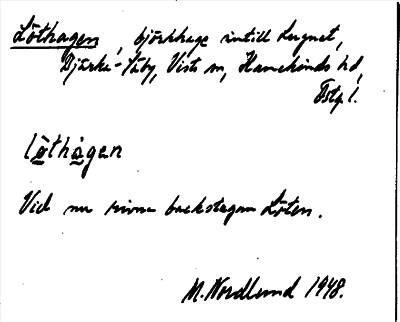 Löthagen, björkhage intill Lugnet,
Bjärka-Säby, Vists sn, Hanekinds hd,
Östg. l.
löthàgen
Vid nu rivna backstugan Löten.
M. Nordlund 1948.